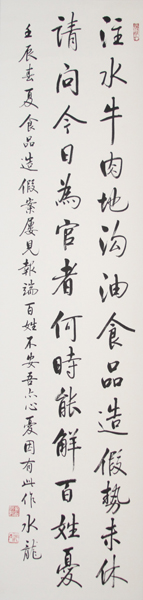 注水牛肉地沟油食品造假勢未休
請问今日為官者何時能解百姓憂
壬辰春夏食品造假案屢見報端百姓不安吾亦心憂因有此作水龍